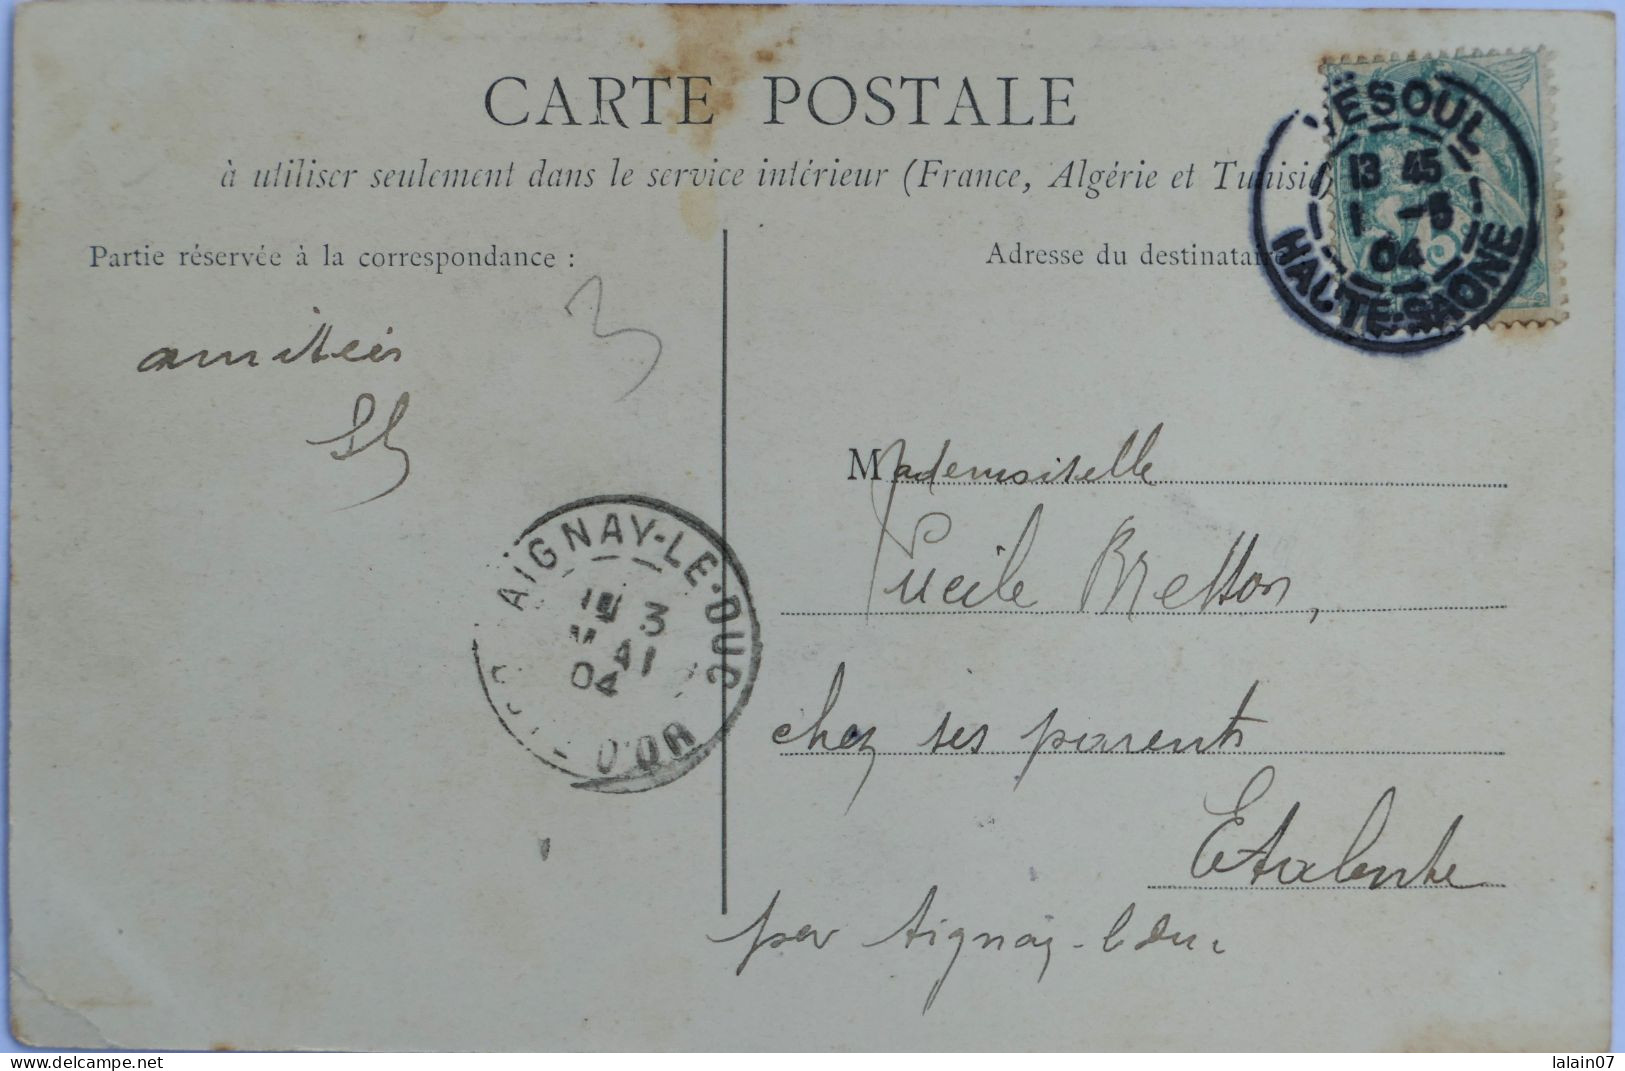 CARTE POSTALE
à utiliser seulement dans le service intérieur (France, Algérie et Tunisie)
Partie réservée à la correspondance :
Adresse du destinataire
VESOUL
13 45
1 -5
04
HAUTE-SAONE
3
amitiés
Mademoiselle
Lucile Bretton,
chez ses parents
Etalente
par Aignay-le Duc
AIGNAY-LE-DUC
3
MAI
04
D'OR
www.delcampe.net
lalain07